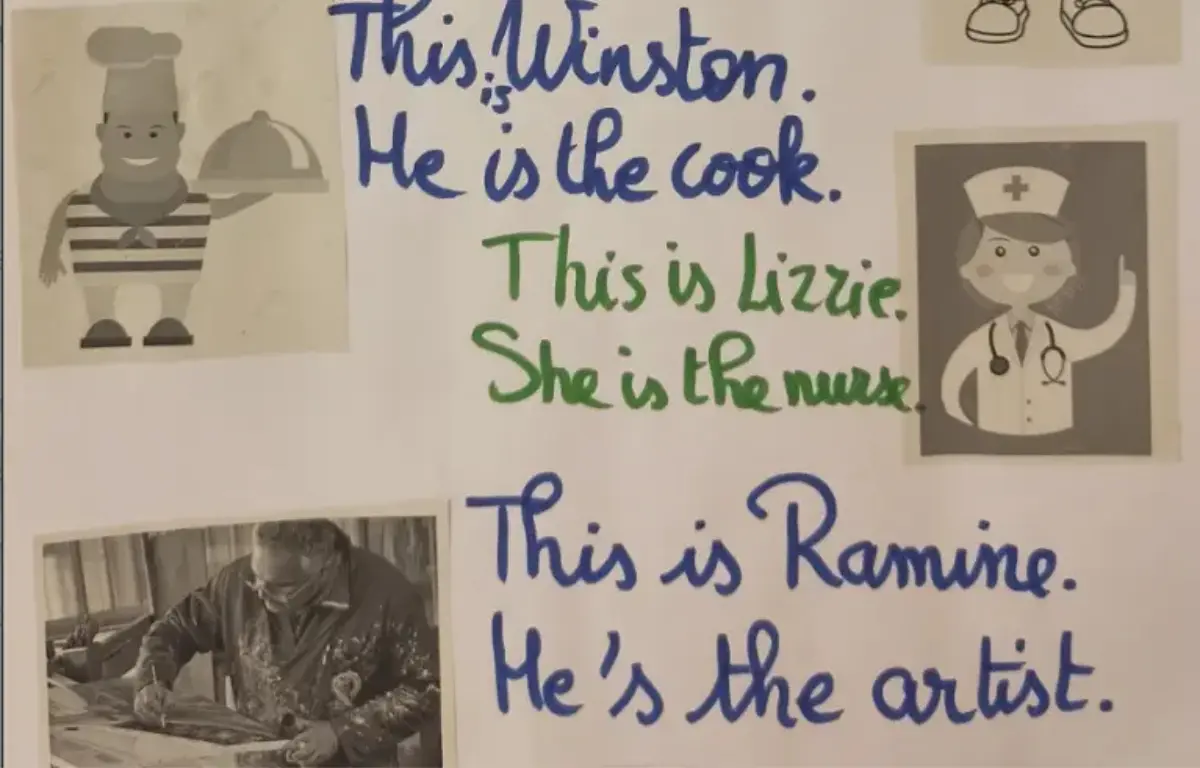 This is Winston.
He is the cook.
This is Lizzie.
She is the nurse.
This is Ramine.
He's the artist.